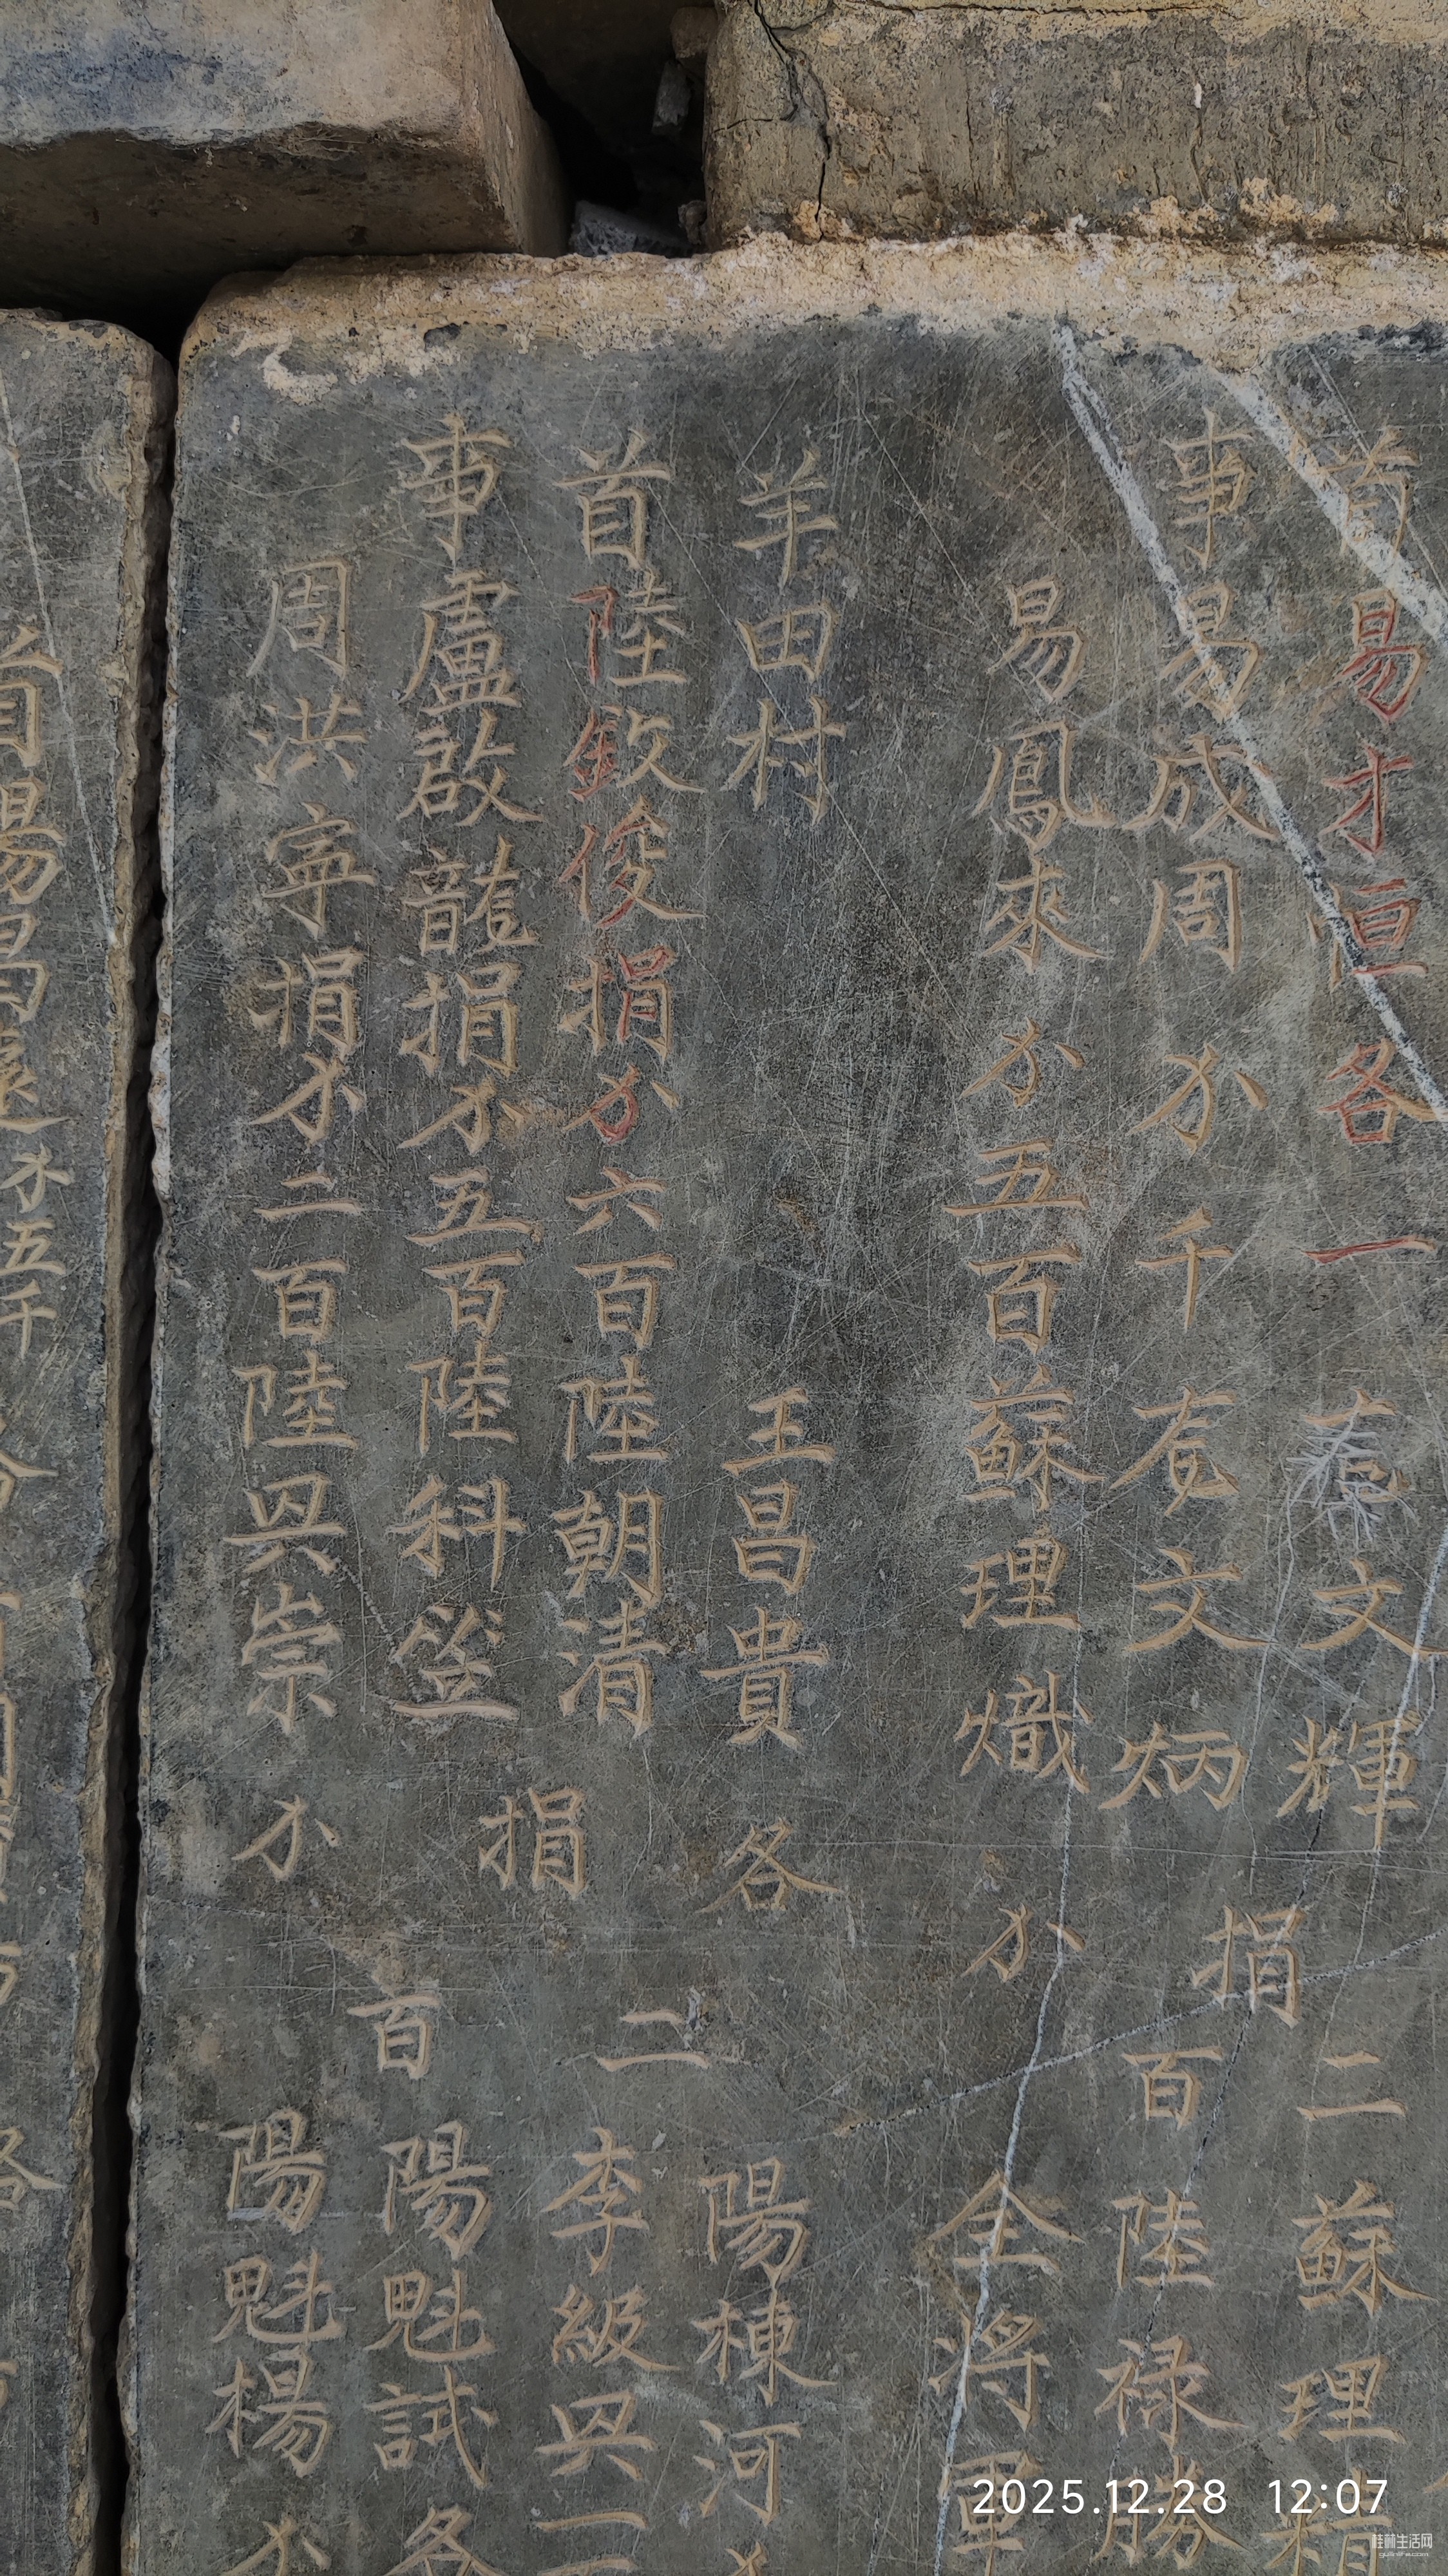 首易才恒各一袁文輝二蘇理精
事易成周千袁文炳捐百陸禄勝
易鳳來五百蘇理熾全將軍
羊田村王昌貴各陽棟河
首陸欽俊捐六百陸朝清二李級兴一
事盧啟龍捐五百陸科捐百陽魁試各
周洪寧捐二百陸兴崇陽魁楊
首易昌五千
2025.12.28 12:07
桂林生活网
guilinlife.com